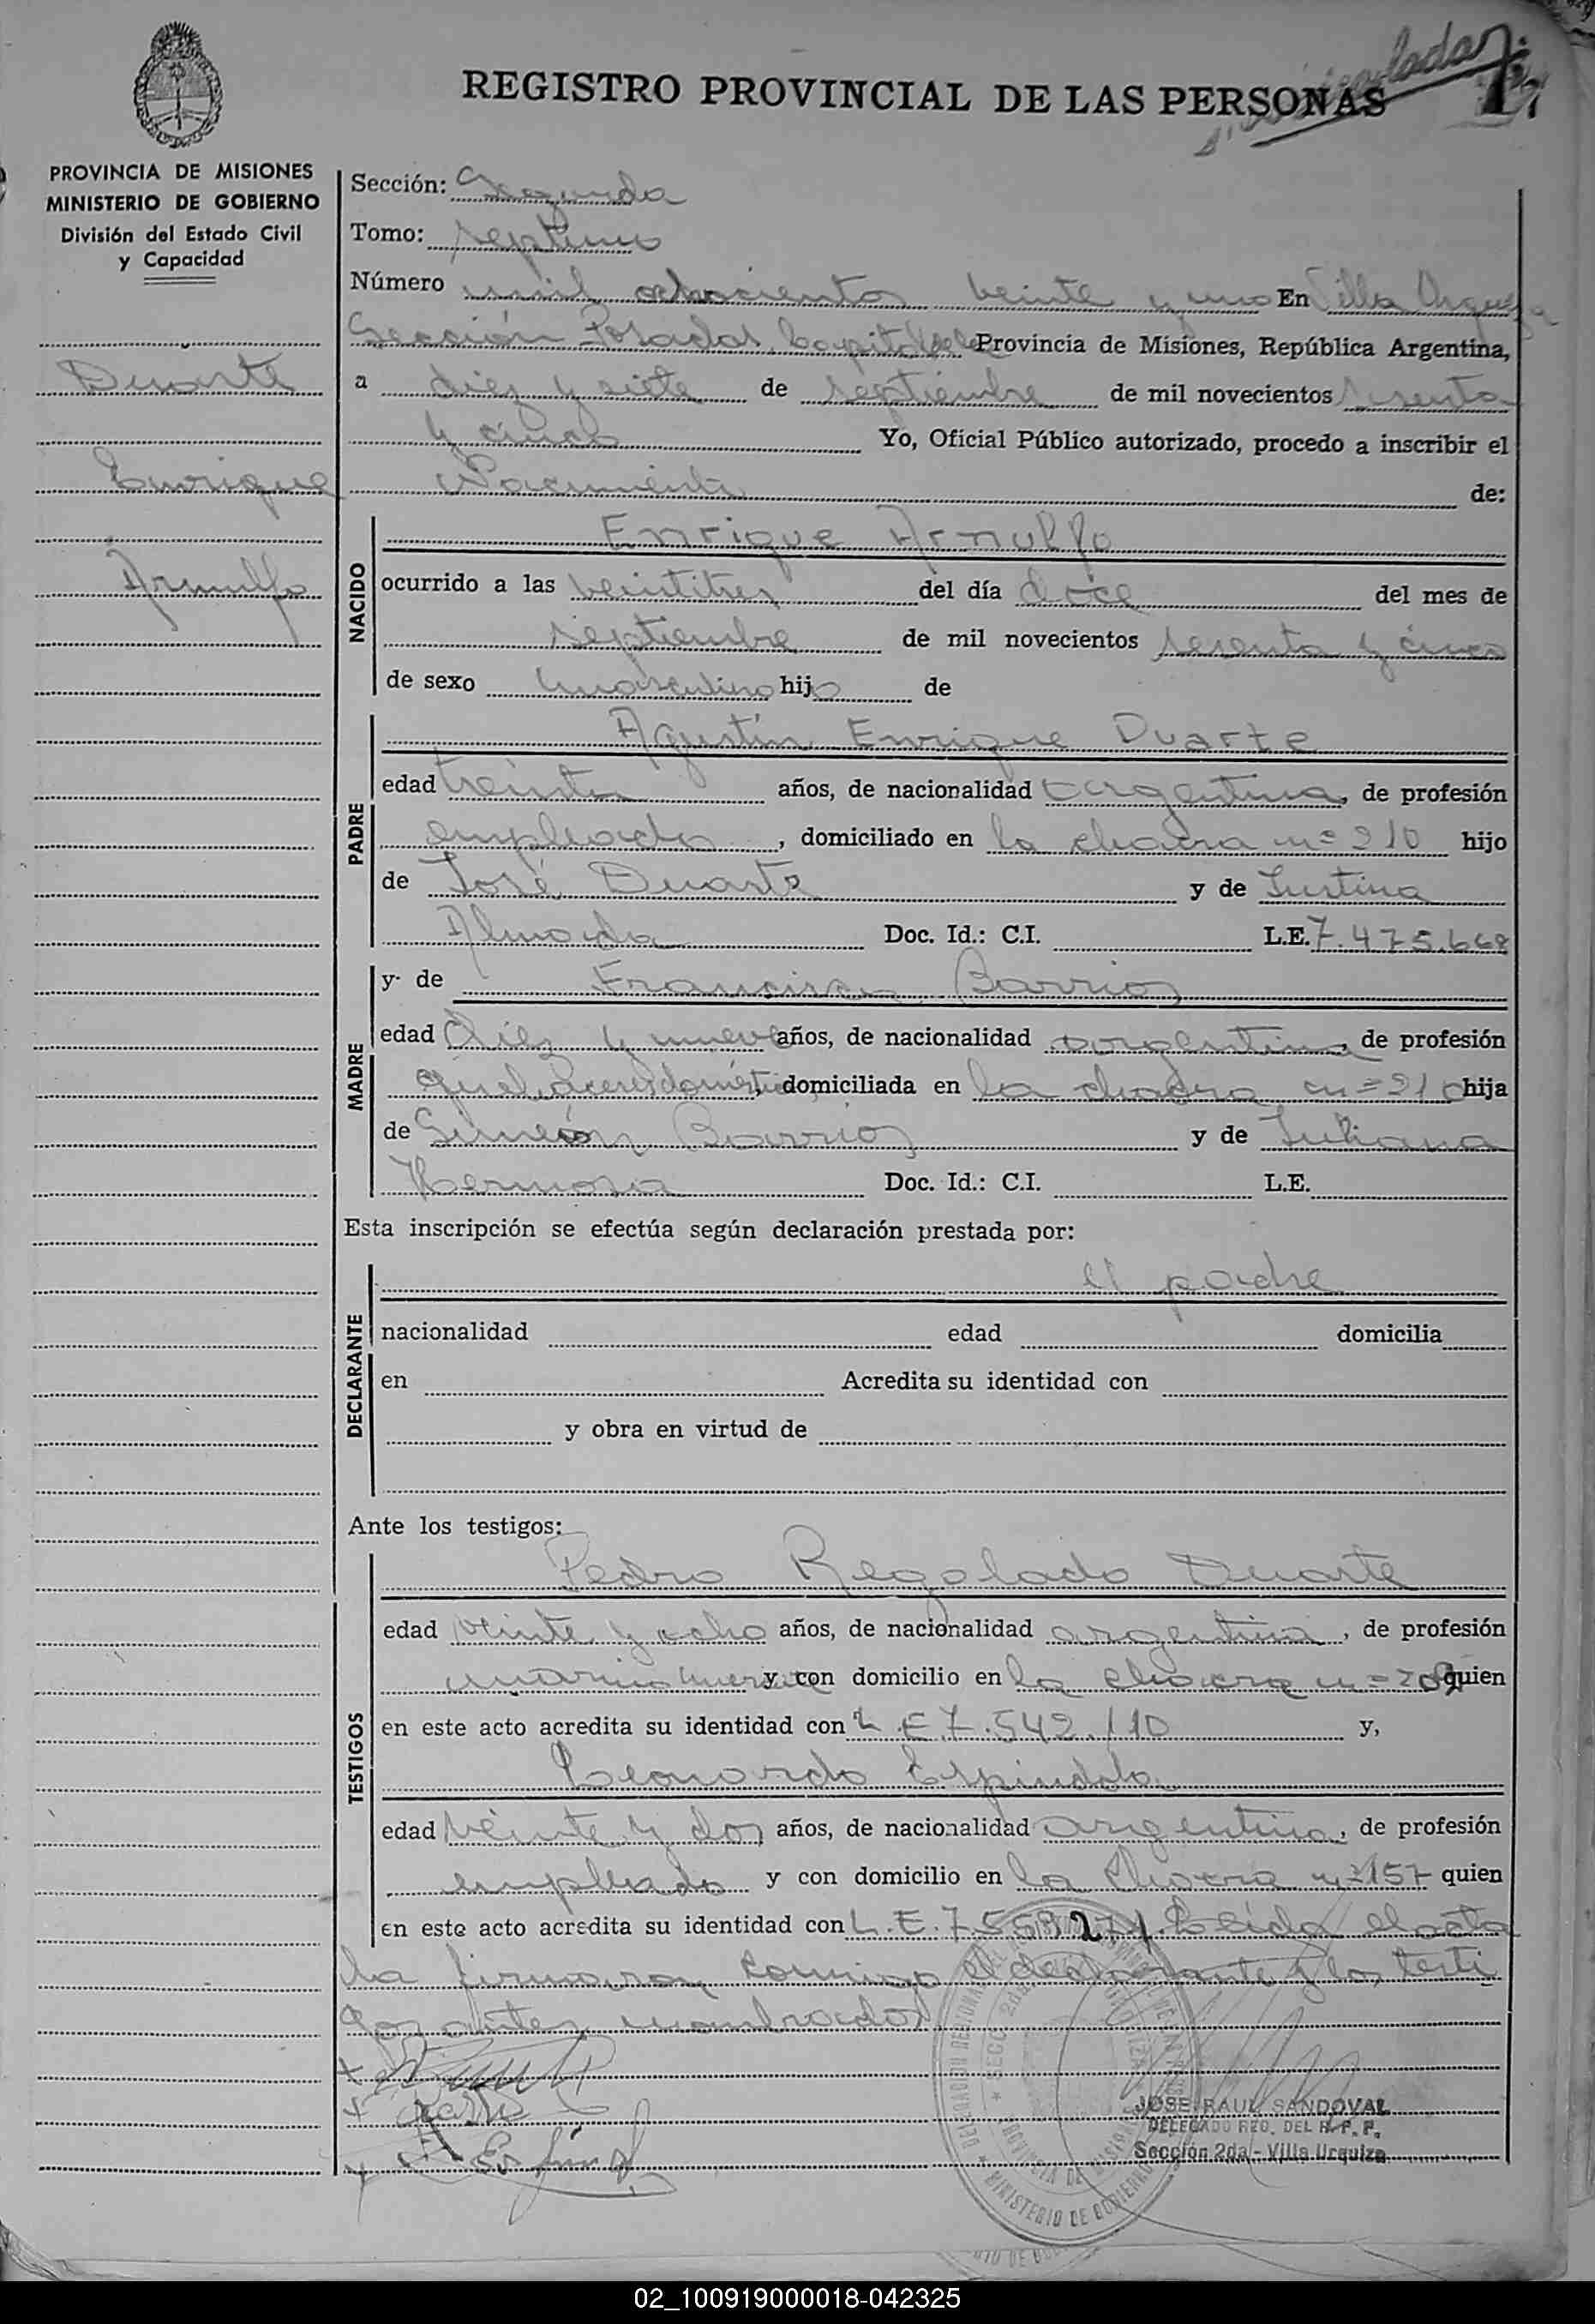 REGISTRO PROVINCIAL DE LAS PERSONAS
PROVINCIA DE MISIONES
MINISTERIO DE GOBIERNO
División del Estado Civil
y Capacidad
Duarte
Enrique
Arnulfo
Sección: Segunda
Tomo: septimo
Número mil ochocientos veinte y uno En Villa Urquiza
Sección Posadas Capital de la Provincia de Misiones, República Argentina,
a diez y siete de septiembre de mil novecientos sesenta
y cinco Yo, Oficial Público autorizado, procedo a inscribir el
Nacimiento de:
NACIDO
Enrique Arnulfo
ocurrido a las veintitres del día doce del mes de
septiembre de mil novecientos sesenta y cinco
de sexo masculino hijo de
PADRE
Agustín Enrique Duarte
edad treinta años, de nacionalidad argentina, de profesión
empleado, domiciliado en la chacra nº 210 hijo
de José Duarte y de Justina
Almada Doc. Id.: C.I. L.E. 7.475.668
MADRE
y de Francisca Barrios
edad diez y nueve años, de nacionalidad argentina, de profesión
quehaceres domésticos, domiciliada en la chacra nº 210 hija
de Simeón Barrios y de Juliana
Hermosa Doc. Id.: C.I. L.E.
Esta inscripción se efectúa según declaración prestada por:
DECLARANTE
el padre
nacionalidad edad domicilia
en Acredita su identidad con
y obra en virtud de
Ante los testigos:
TESTIGOS
Pedro Regalado Duarte
edad veinte y ocho años, de nacionalidad argentina, de profesión
y con domicilio en la chacra nº quien
en este acto acredita su identidad con L.E. 7.542.110 y,
Leonardo Espindola
edad veinte y dos años, de nacionalidad argentina, de profesión
empleado y con domicilio en la chacra nº 157 quien
en este acto acredita su identidad con L.E. 7.559.271. Leida el acta
la firmaron conmigo el declarante y los testi
gos antes nombrados
JOSE RAUL SANDOVAL
DELEGADO REG. DEL R. P. P.
Sección 2da - Villa Urquiza
MINISTERIO DE GOBIERNO
02_100919000018-042325